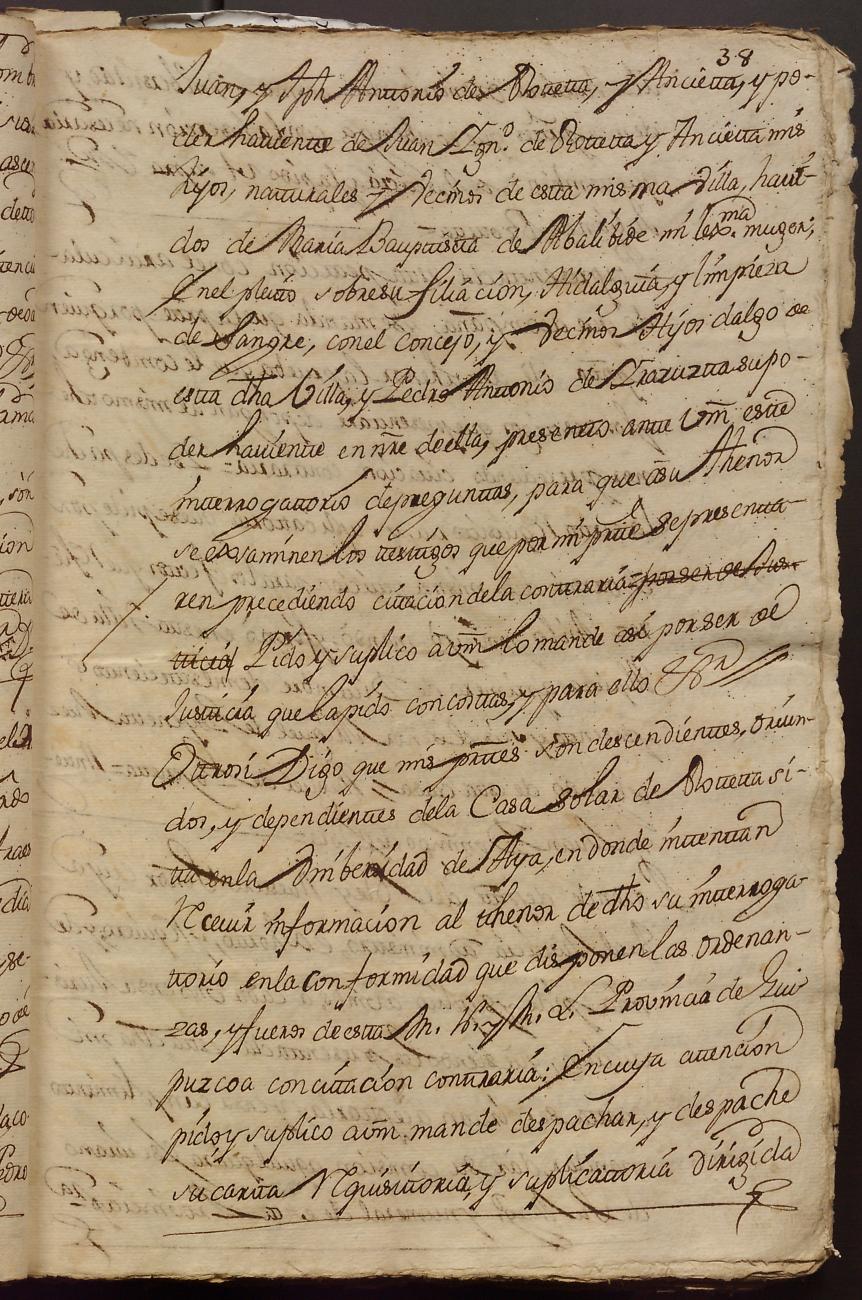 38
Juan, y Jph Antonio de Rotetta, y Ancietta, y po-
der haviente de Juan Ygn.º de Rotetta y Ancietta mis
hijos, natturales y Vecinos de estta misma Villa, havi-
dos de Maria Bauptistta de Abalibide mi lex.ma muger;
En el pleito sobre su filiacion, Hidalguia, y limpieza
de Sangre, con el Concejo, y Vecinos Hijos dalgo de
estta dha Villa, y Pedro Antonio de su po-
der haviente en nre de ella, presento ante Vm estte
interrogattorio de pregunttas, para que a su thenor
se examinen los testtigos que por mi prtte se presentta-
ren precediendo cittacion de la contraria por ser de Jus-
tticia Pido y suplico a vm lo mande assi por ser de
Justticia que la pido con costtas, y para ello &ra
Ottrosi Digo que mis prttes son descendientes, oriun-
dos, y dependientes de la Casa solar de Rotetta si-
tta en la Vniversidad de Aya, en donde inttenttan
recivir informacion al thenor de dho su interroga-
ttorio en la conformidad que disponen las ordenan-
zas, y fueros de estta M. N. y M. L. Provincia de Gui-
puzcoa con cittacion contraria: En cuya attencion
pido y suplico a vm mande despachar, y despache
su cartta Requisittoria, y suplicattoria dirigida